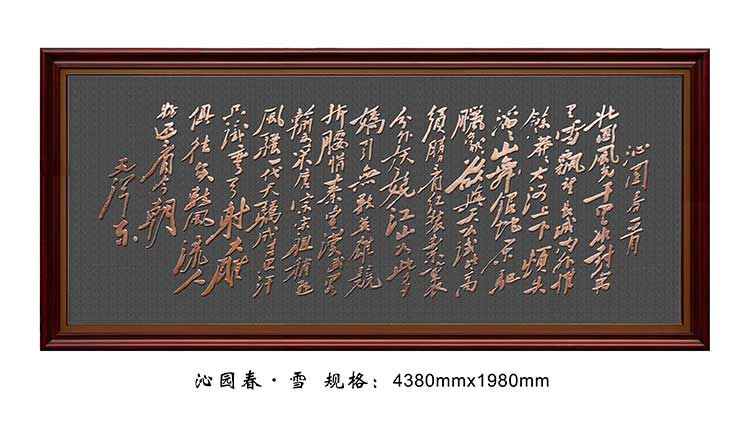 沁園春雪
北國風光千里冰封萬
里雪飘望長城内外惟
餘莽莽大河上下頓失
滔滔山舞銀蛇原馳
臘象欲與天公試比高
須晴日看红裝素裹
分外妖娆江山如此多
嬌引無數英雄競
折腰惜秦皇漢武略
輸文采唐宗宋祖稍遜
風骚一代天驕成吉思汗
只識彎弓射大雕
俱往矣數風流人
物还看今朝
毛澤东
沁园春·雪 规格：4380mmx1980mm